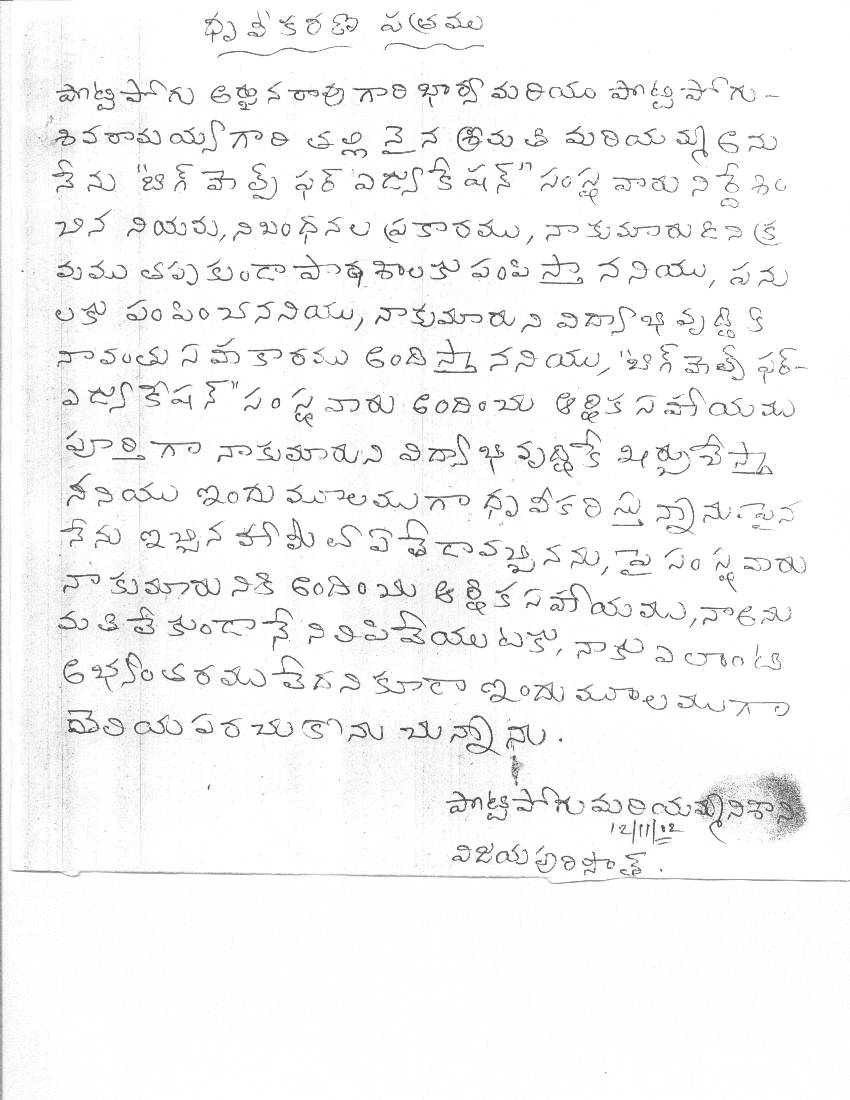 ధృవీకరణ పత్రము
పొట్టిపోగు అర్జునరావు గారి భార్య మరియు పొట్టిపోగు -
శివరామయ్య గారి తల్లి నైన శ్రీమతి మరియమ్మ అను
నేను "టిగ్ హెల్ప్స్ ఫర్ ఎడ్యుకేషన్" సంస్థ వారు నిర్దేశిం
చిన నియమ, నిబంధనల ప్రకారము, నాకుమారుడిని క్ర
మము తప్పకుండా పాఠశాలకు పంపిస్తా ననియు, పను
లకు పంపించననియు, నాకుమారుని విద్యాభివృద్ధికి
నావంతు సహకారము అందిస్తా ననియు, "టిగ్ హెల్ప్స్ ఫర్-
ఎడ్యుకేషన్" సంస్థ వారు అందించు ఆర్థిక సహాయము
పూర్తిగా నాకుమారుని విద్యాభివృద్ధికే ఖర్చుచేస్తా
ననియు ఇందు మూలముగా ధృవీకరిస్తున్నాను. పైన
నేను ఇచ్చిన హామీలలో ఏ తేడావచ్చినను, పై సంస్థవారు
నాకుమారునికి అందించు ఆర్థికసహాయము, నాఅను
మతి లేకుండానే నిలిపివేయుటకు, నాకు ఎలాంటి
అభ్యంతరము లేదని కూడా ఇందుమూలముగా
తెలియపరచుకొనుచున్నాను.
పొట్టిపోగు మరియమ్మ నిశాని
12/11/02
విజయపురిసౌత్.